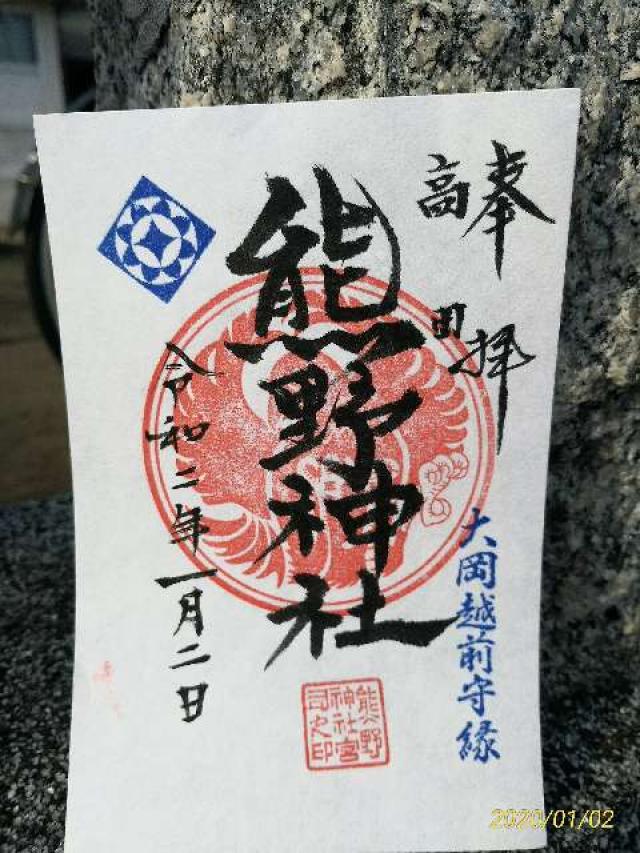 奉拝
高田
熊野神社
令和二年一月二日
大岡越前守縁
熊野
神社宮
司之印
2020/01/02